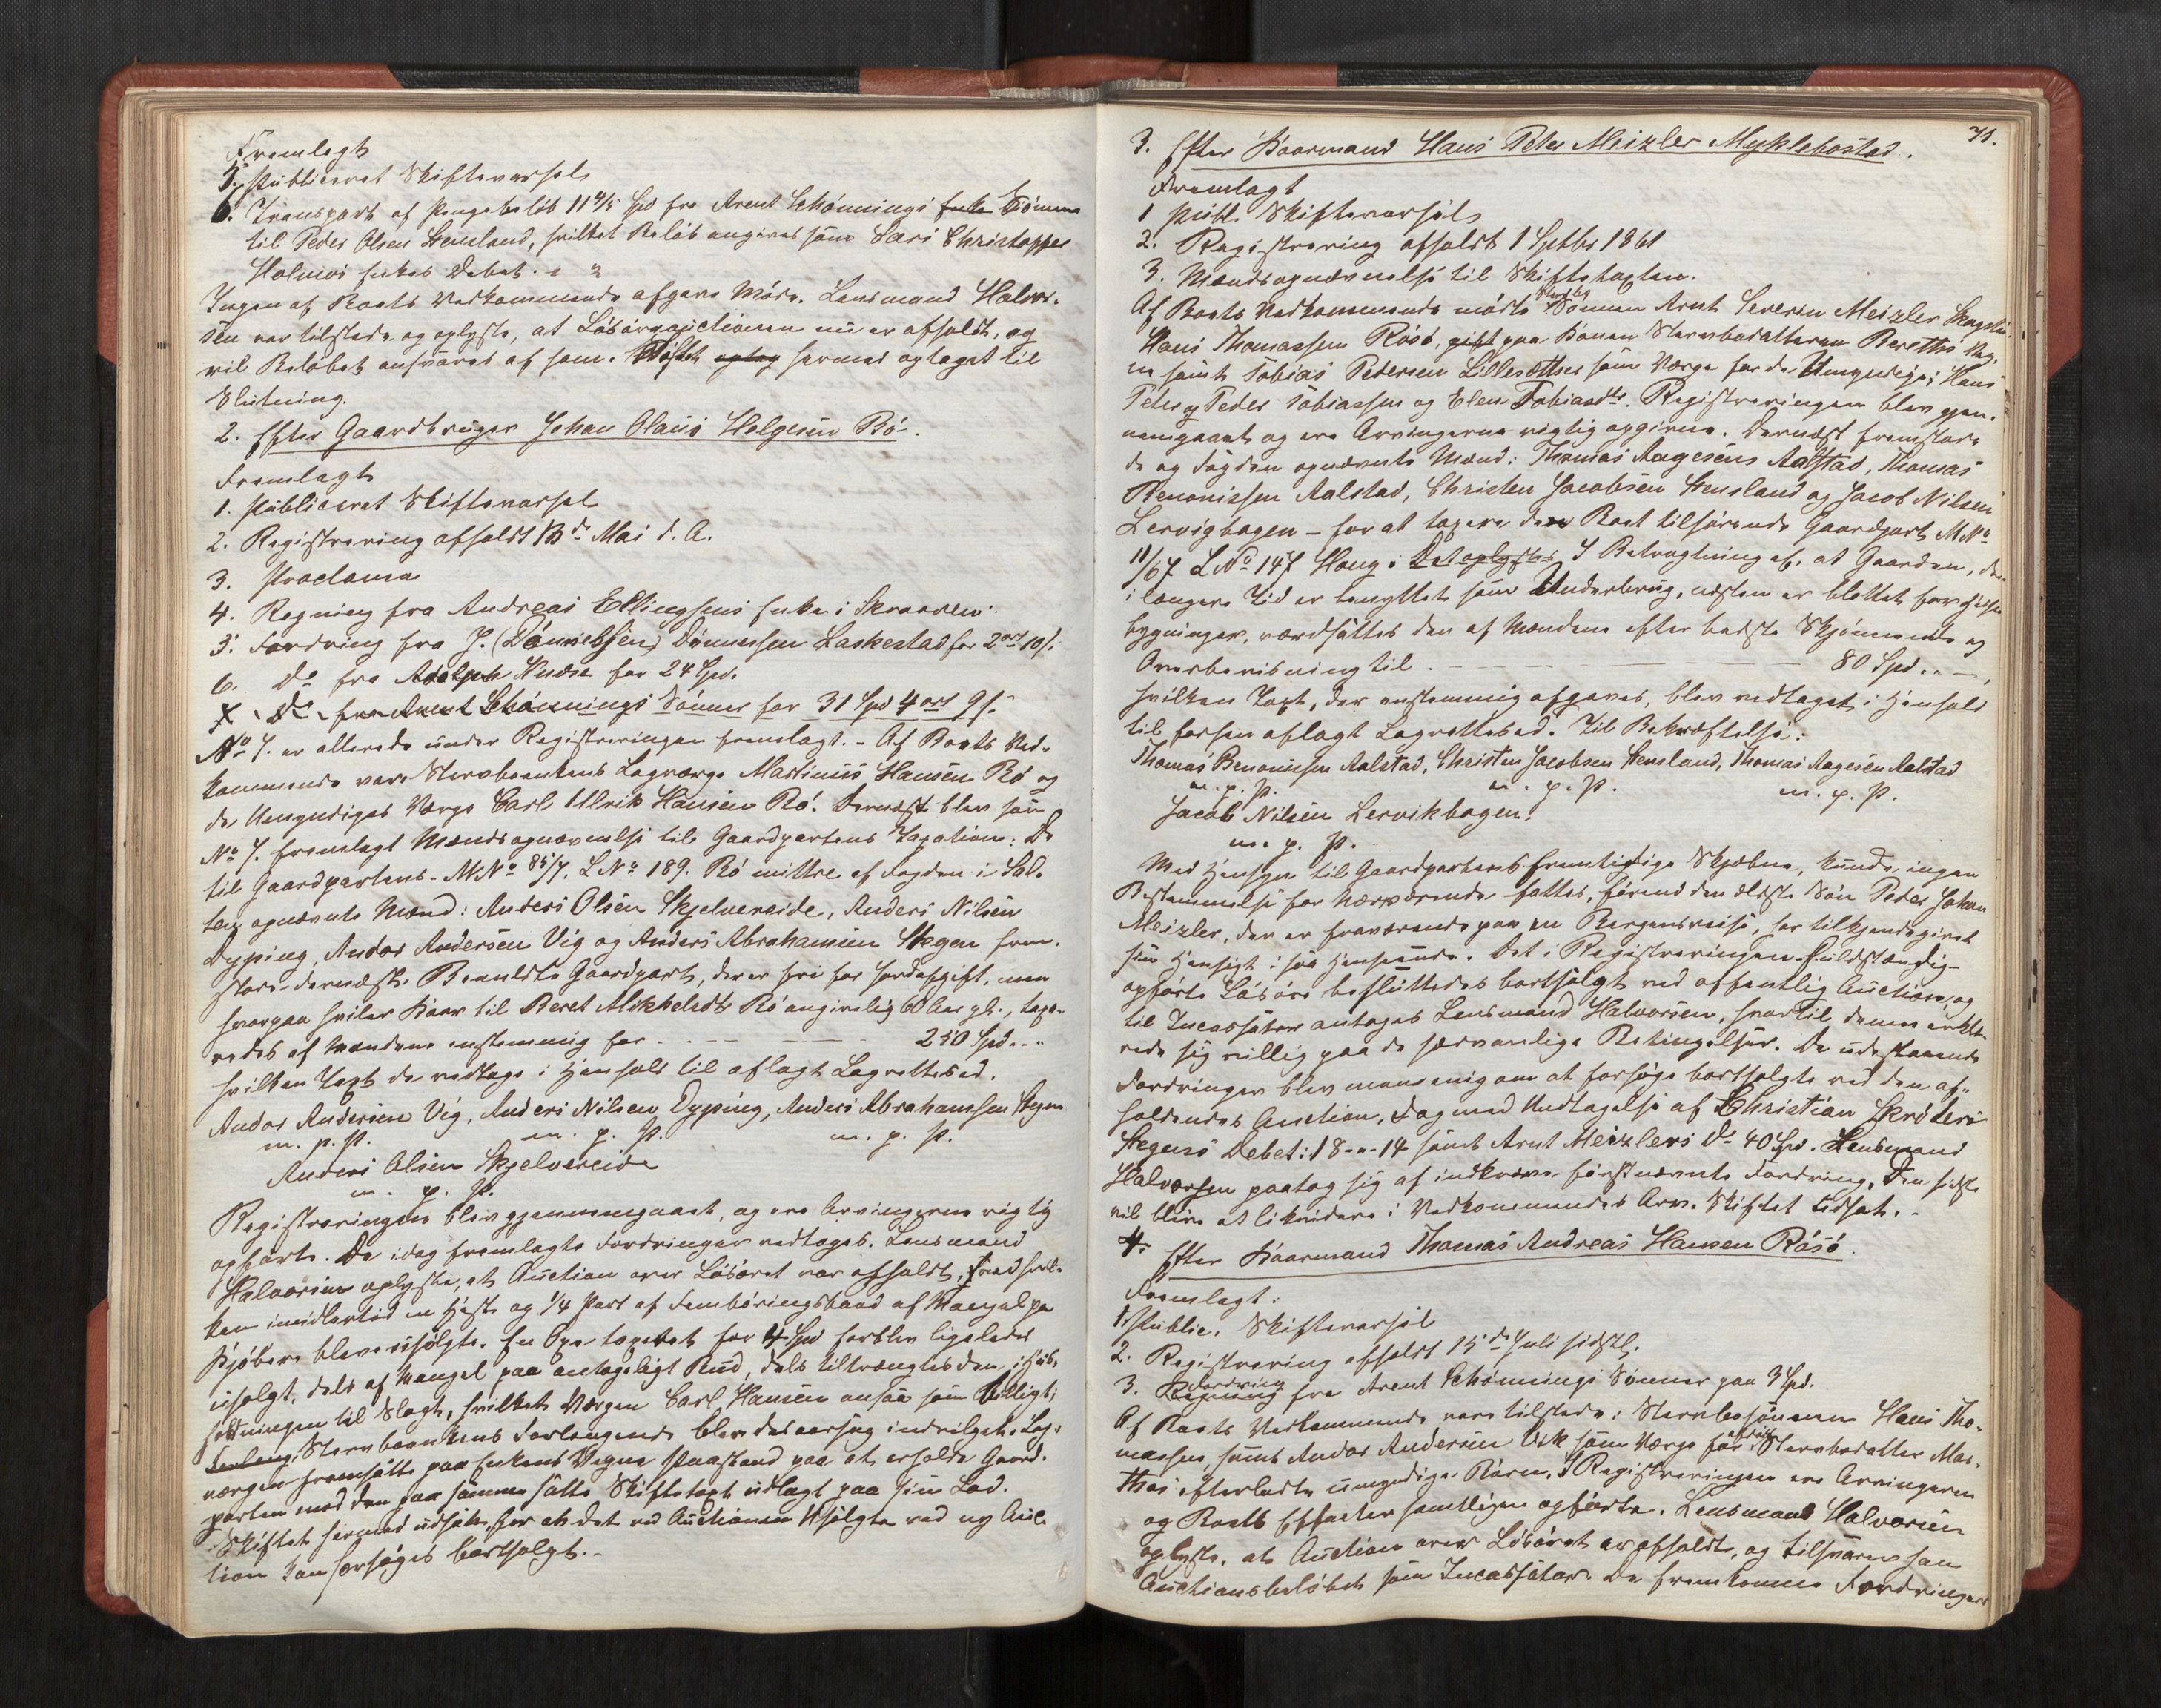 Fremlagt
5. Publiceret Skiftevarsel
6. Transport af Pengebeløb 11 4/5 Spd fra Arent Schønnings Enke Sønner
til Peder Olsen Stensland, hvilket Beløb angives som Lars Christopher
Holmvi Enkes Debet.
Ingen af Boets Vedkommende afgave Møde. Lensmand Halvor-
sen var tilstede og oplyste, at Løsøreauctionen nu er afholdt, og
vil Beløbet ansvares af ham. Skiftet optog hermed optaget til
Slutning.
2. Efter Gaardbruger Johan Olaus Helgesen Bö.
Fremlagt
1. Publiceret Skiftevarsel
2. Registrering afholdt 13de Mai d. A.
3. Proclama
4. Regning fra Andreas Ellingsens Enke i Skraaven
5. Fordring fra J. (Danielssen) Dønnessen Laskestad for 2 ort 10 s.
6. Do fra Adolph Knudse for 24 Spd.
7. Do fra Arent Schønnings Sønner for 31 Spd 4 ort 9 s.
No 7. er allerede under Registreringen fremlagt. - Af Boets Ved-
kommende vare Sterboenkens Lagværge Martinus Hansen Bö og
de Umyndiges Værge Carl Ulrik Hansen Bö. Dernæst blev som
No 7. fremlagt Mændsopnævnelse til Gaardpartens Taxation: De
til Gaardpartens - M No 85/7. L No 189. Bö mittre af Fogden i Sal-
ten opnævnte Mænd: Anders Olsen Skjelvereide, Anders Nilsen
Dyping, Andor Andersen Vig og Anders Abrahamsen Stegen frem-
stode dernæst. Bemeldte Gaardpart, der er fri for Jordafgift, men
hvorpaa hviler Kaar til Beret Mikkelsdtr Bö angivelig 60 Aar gl., taxe-
redes af Mændene enstemmig for - - - 250 Spd. -
hvilken Taxt de vedtoge i Henhold til aflagt Lagrettesed.
Andor Andersen Vig, Anders Nilsen Dyping, Anders Abrahamsen Stegen
m. p. P. m. p. P. m. p. P.
Anders Olsen Skjelvereide
m. p. P.
Registreringen blev gjennemgaaet, og ere Arvingerne rigtig
opførte. De idag fremlagte Fordringer vedtoges. Lensmand
Halvorsen oplyste, at Auction over Løsøret var afholdt, ved hvil-
ken imidlertid en Hest og 1/4 Part af Fembøringsbaad af Mangel paa
Kjøbere bleve usolgte. En Oxe taxeret for 4 Spd forblev ligeledes
usolgt, dels af Mangel paa antageligt Bud, dels tiltrængtes den i Huus-
holdningen til Slagt, hvilket Værgen Carl Hansen ansaa som billigt;
Forlang. Sterboenkens Forlangende blev desaarsag indvilget. Lag-
værgen fremsatte paa Enkens Vegne Paastand paa at erholde Gaard-
parten mod den paa samme satte Skiftetaxt udlagt paa sin Lod.
Skiftet hermed udsat, for at det ved Auctionen Usolgte ved ny Auc-
tion kan forsøges bortsolgt. -
71.
3. Efter Kaarmand Hans Peter Meizler Myklebostad.
Fremlagt
1 Publ. Skiftevarsel
2. Registrering afholdt 1 Septbr 1861
3. Mændsopnævnelse til Skiftetaxten.
Af Boets Vedkommende mødte Sønnen Arnt Severin Meizler
Hans Thomassen Rösö, gift paa Konen Sterbodatteren Berethe
samt Tobias Pedersen Lillesætter som Værge for de Umyndige: Hans
Peter og Peder Tobiassen og Elen Tobiasdtr. Registreringen blev gjen-
nemgaaet og ere Arvingerne rigtig opgivne. Dernæst fremstode
de og Fogden opnævnte Mænd: Thomas Aagesens Aalstad, Thomas
Benonissen Aalstad, Christen Jacobsen Stensland og Jacob Nilsen
Lervigbogen - for at taxere den Boet tilhørende Gaardpart M No
11/67 L No 147 Haug: Det oplystes I Betragtning af, at Gaarden, der
i længere Tid er benyttet som Underbrug, næsten er blottet for Huse
bygninger, værdsattes den af Mændene efter bedste Skjønnende og
Overbevisning til - - - 80 Spd. -
hvilken Taxt, der enstemmig afgaves, blev vedtaget i Henhold
til forhen aflagt Lagrettesed. Til Bekræftelse:
Thomas Benonissen Aalstad, Christen Jacobsen Stensland, Thomas Aagesen Aalstad
m. p. P. m. p. P. m. p. P.
Jacob Nilsen Lervikbogen.
m. p. P.
Med Hensyn til Gaardpartens fremtidige Skjæbne, kunde ingen
Bestemmelse for Nærværende fattes, førend den ældste Søn Peder Johan
Meizler, der er fraværende paa en Bergensreise, har tilkjendegivet
sin Hensigt i saa Henseende. Det i Registreringen fuldstændig
opførte Løsøre besluttedes bortsolgt ved offentlig Auction, og
til Incassator antages Lensmand Halvorsen, hvortil denne erklæ-
rede sig villig paa de sædvanlige Betingelser. De udestaaende
Fordringer blev man enig om at forsøge bortsolgte ved den af-
holdendes Auction, dog med Undtagelse af Christian Skrøders
Stegens Debet: 18-"-14 samt Arnt Meizlers Do 40 Spd. Lensmand
Halvorsen paatog sig af indkræve førstnævnte Fordring. Den sidste
vil blive at likvidere i Vedkommendes Arv. Skiftet udsat. -
4. Efter Kaarmand Thomas Andreas Hansen Rösö.
Fremlagt:
1. Public. Skiftevarsel
2. Registrering afholdt 15de Juli sidstl.
3. Regning Fordring fra Arent Schønnings Sønner paa 3 Spd.
Af Boets Vedkommende vare tilstede: Sterbosønnen Hans Tho-
massen, samt Andor Andersen Vik som Værge for afdøde Sterbodatter Mar-
thas efterladte umyndige Børn. I Registreringen ere Arvingerne
og Boets Effecter samtligen opførte. Lensmand Halvorsen
oplyste, at Auction over Løsøret er afholdt, og tilsvarer han
Auctionsbeløbet som Incassator. De fremkomne Fordringer